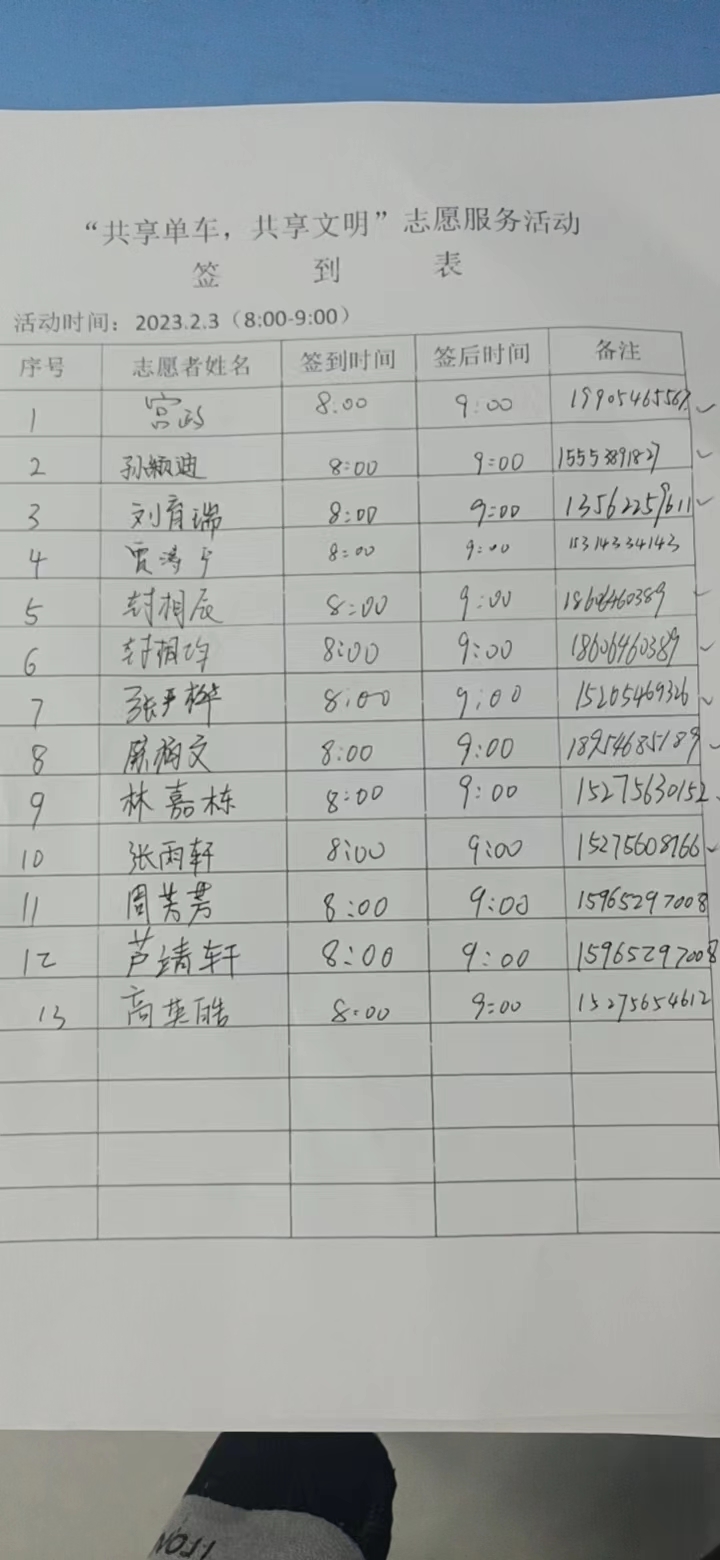 “共享单车，共享文明”志愿服务活动
签 到 表
活动时间：2023.2.3（8:00-9:00）
序号 志愿者姓名 签到时间 签后时间 备注
1 宫政 8:00 9:00
2 孙颖迪 8:00 9:00 15553891827
3 刘育瑞 8:00 9:00 13562259611
4 8:00 9:00 15314334143
5 封相辰 8:00 9:00 18606460389
6 封相 8:00 9:00 18606460389
7 8:00 9:00 15205469326
8 8:00 9:00 18954685189
9 林嘉栋 8:00 9:00 15275630152
10 张雨轩 8:00 9:00 15275608766
11 周芳芳 8:00 9:00 15965297008
12 芦靖轩 8:00 9:00 15965297008
13 高英皓 8:00 9:00 15275654612